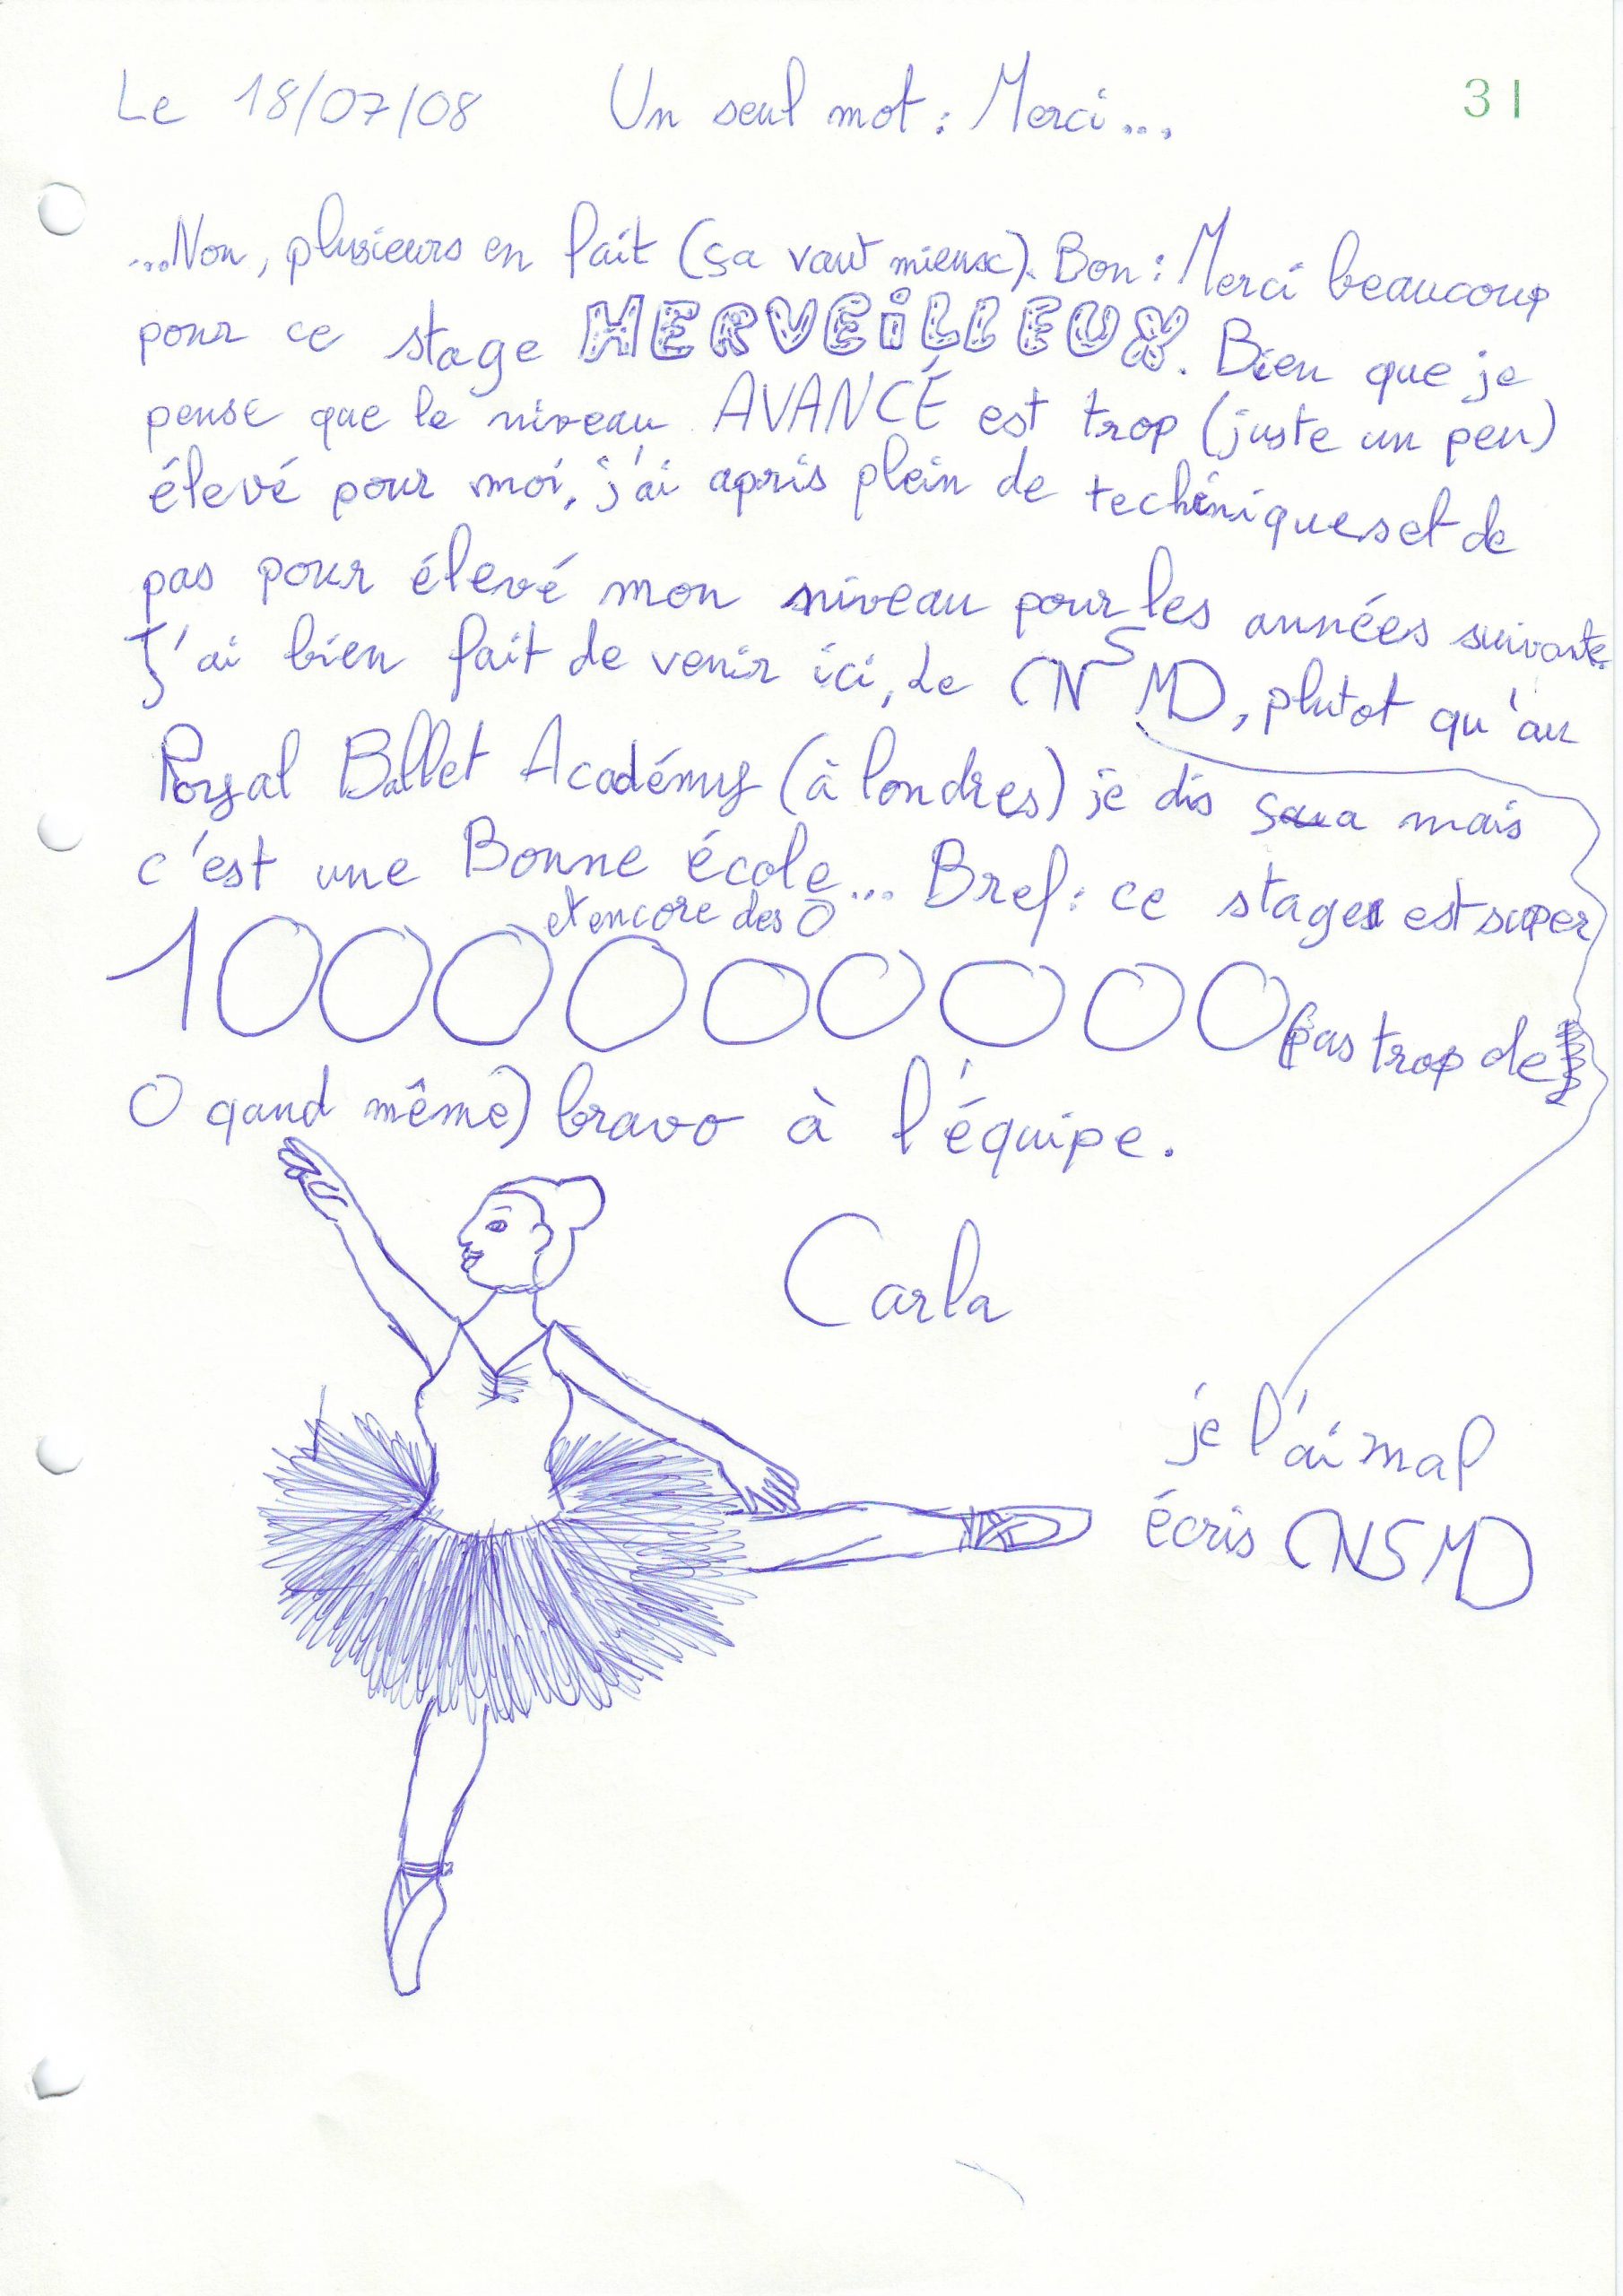 Le 18/07/08 Un seul mot : Merci...
31
...Non, plusieurs en fait (ça vaut mieux). Bon : Merci beaucoup
pour ce stage MERVEiLLEUX. Bien que je
pense que le niveau AVANCÉ est trop (juste un peu)
élevé pour moi, j'ai apris plein de techniques et de
pas pour élevé mon niveau pour les années suivante.
J'ai bien fait de venir ici, le CNSMD, plutot qu'au
Royal Ballet Académy (à londres) je dis ça mais
c'est une Bonne école... Bref : ce stage est super
et encore des 0
1000000000 (pas trop de
0 qand même) bravo à l'équipe.
Carla
je l'ai mal
écris CNSMD